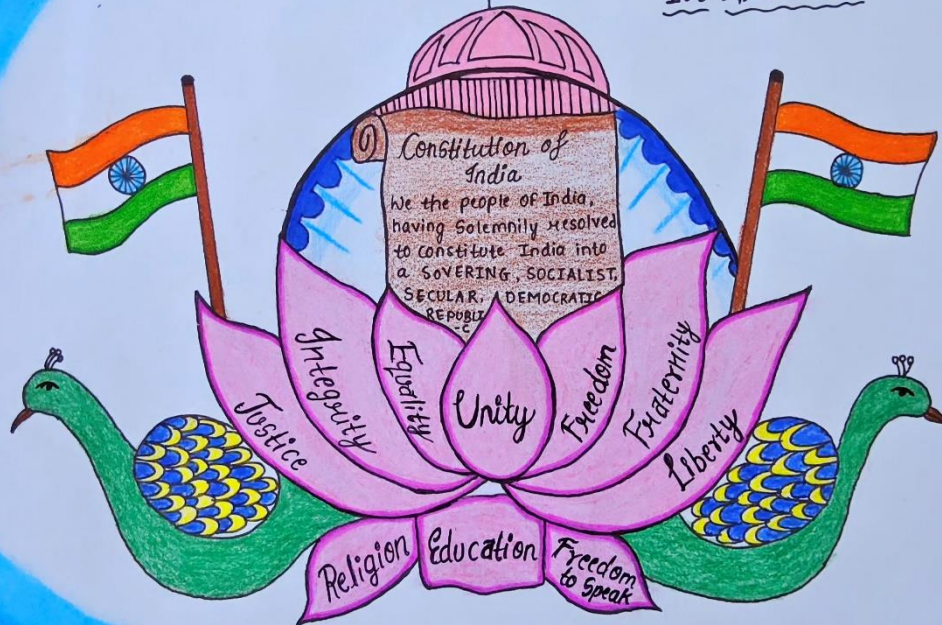 Constitution of
India
We the people of India,
having Solemnily resolved
to constitute India into
a SOVERING, SOCIALIST,
SECULAR, DEMOCRATIC
REPUBLI
-C
Justice
Integrity
Equality
Unity
Freedom
Fraternity
Liberty
Religion
Education
Freedom
to Speak